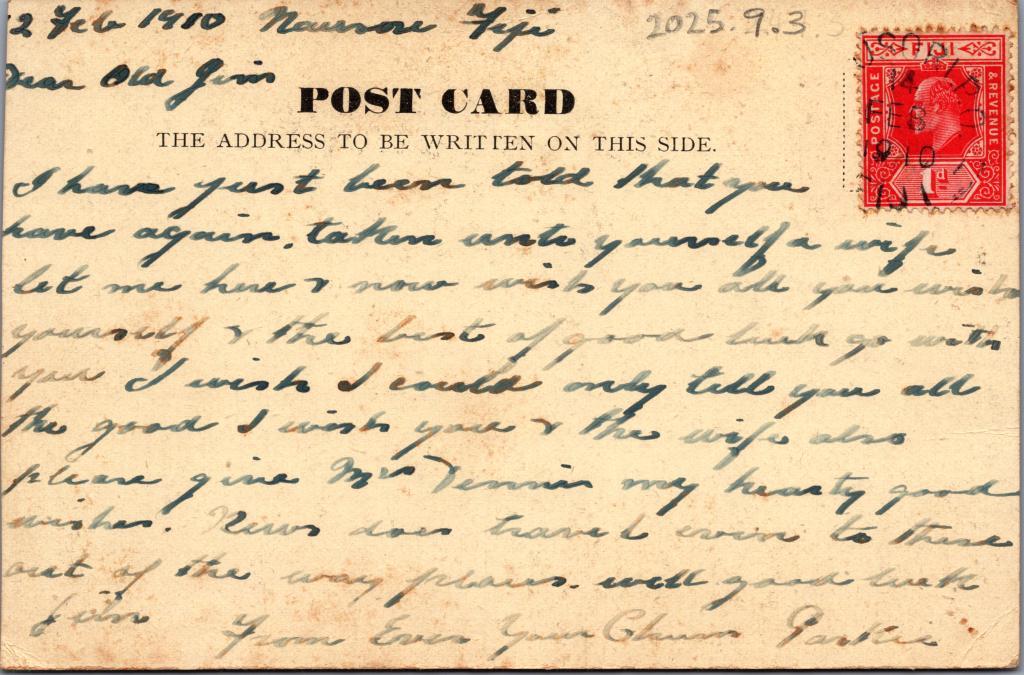 2 Feb 1910 Nausori Fiji 2025.9.3
Dear Old Jim
POST CARD
THE ADDRESS TO BE WRITTEN ON THIS SIDE.
FIJI
POSTAGE & REVENUE
1d
FEB
1910
I have just been told that you
have again, taken unto yourself a wife
let me here & now wish you all you wish
yourself & the best of good luck go with
you I wish I could only tell you all
the good I wish you & the wife also
please give Mrs Dennis my hearty good
wishes. News does travel even to these
out of the way places. well good luck
Jim From Ever Your Chum Parkie